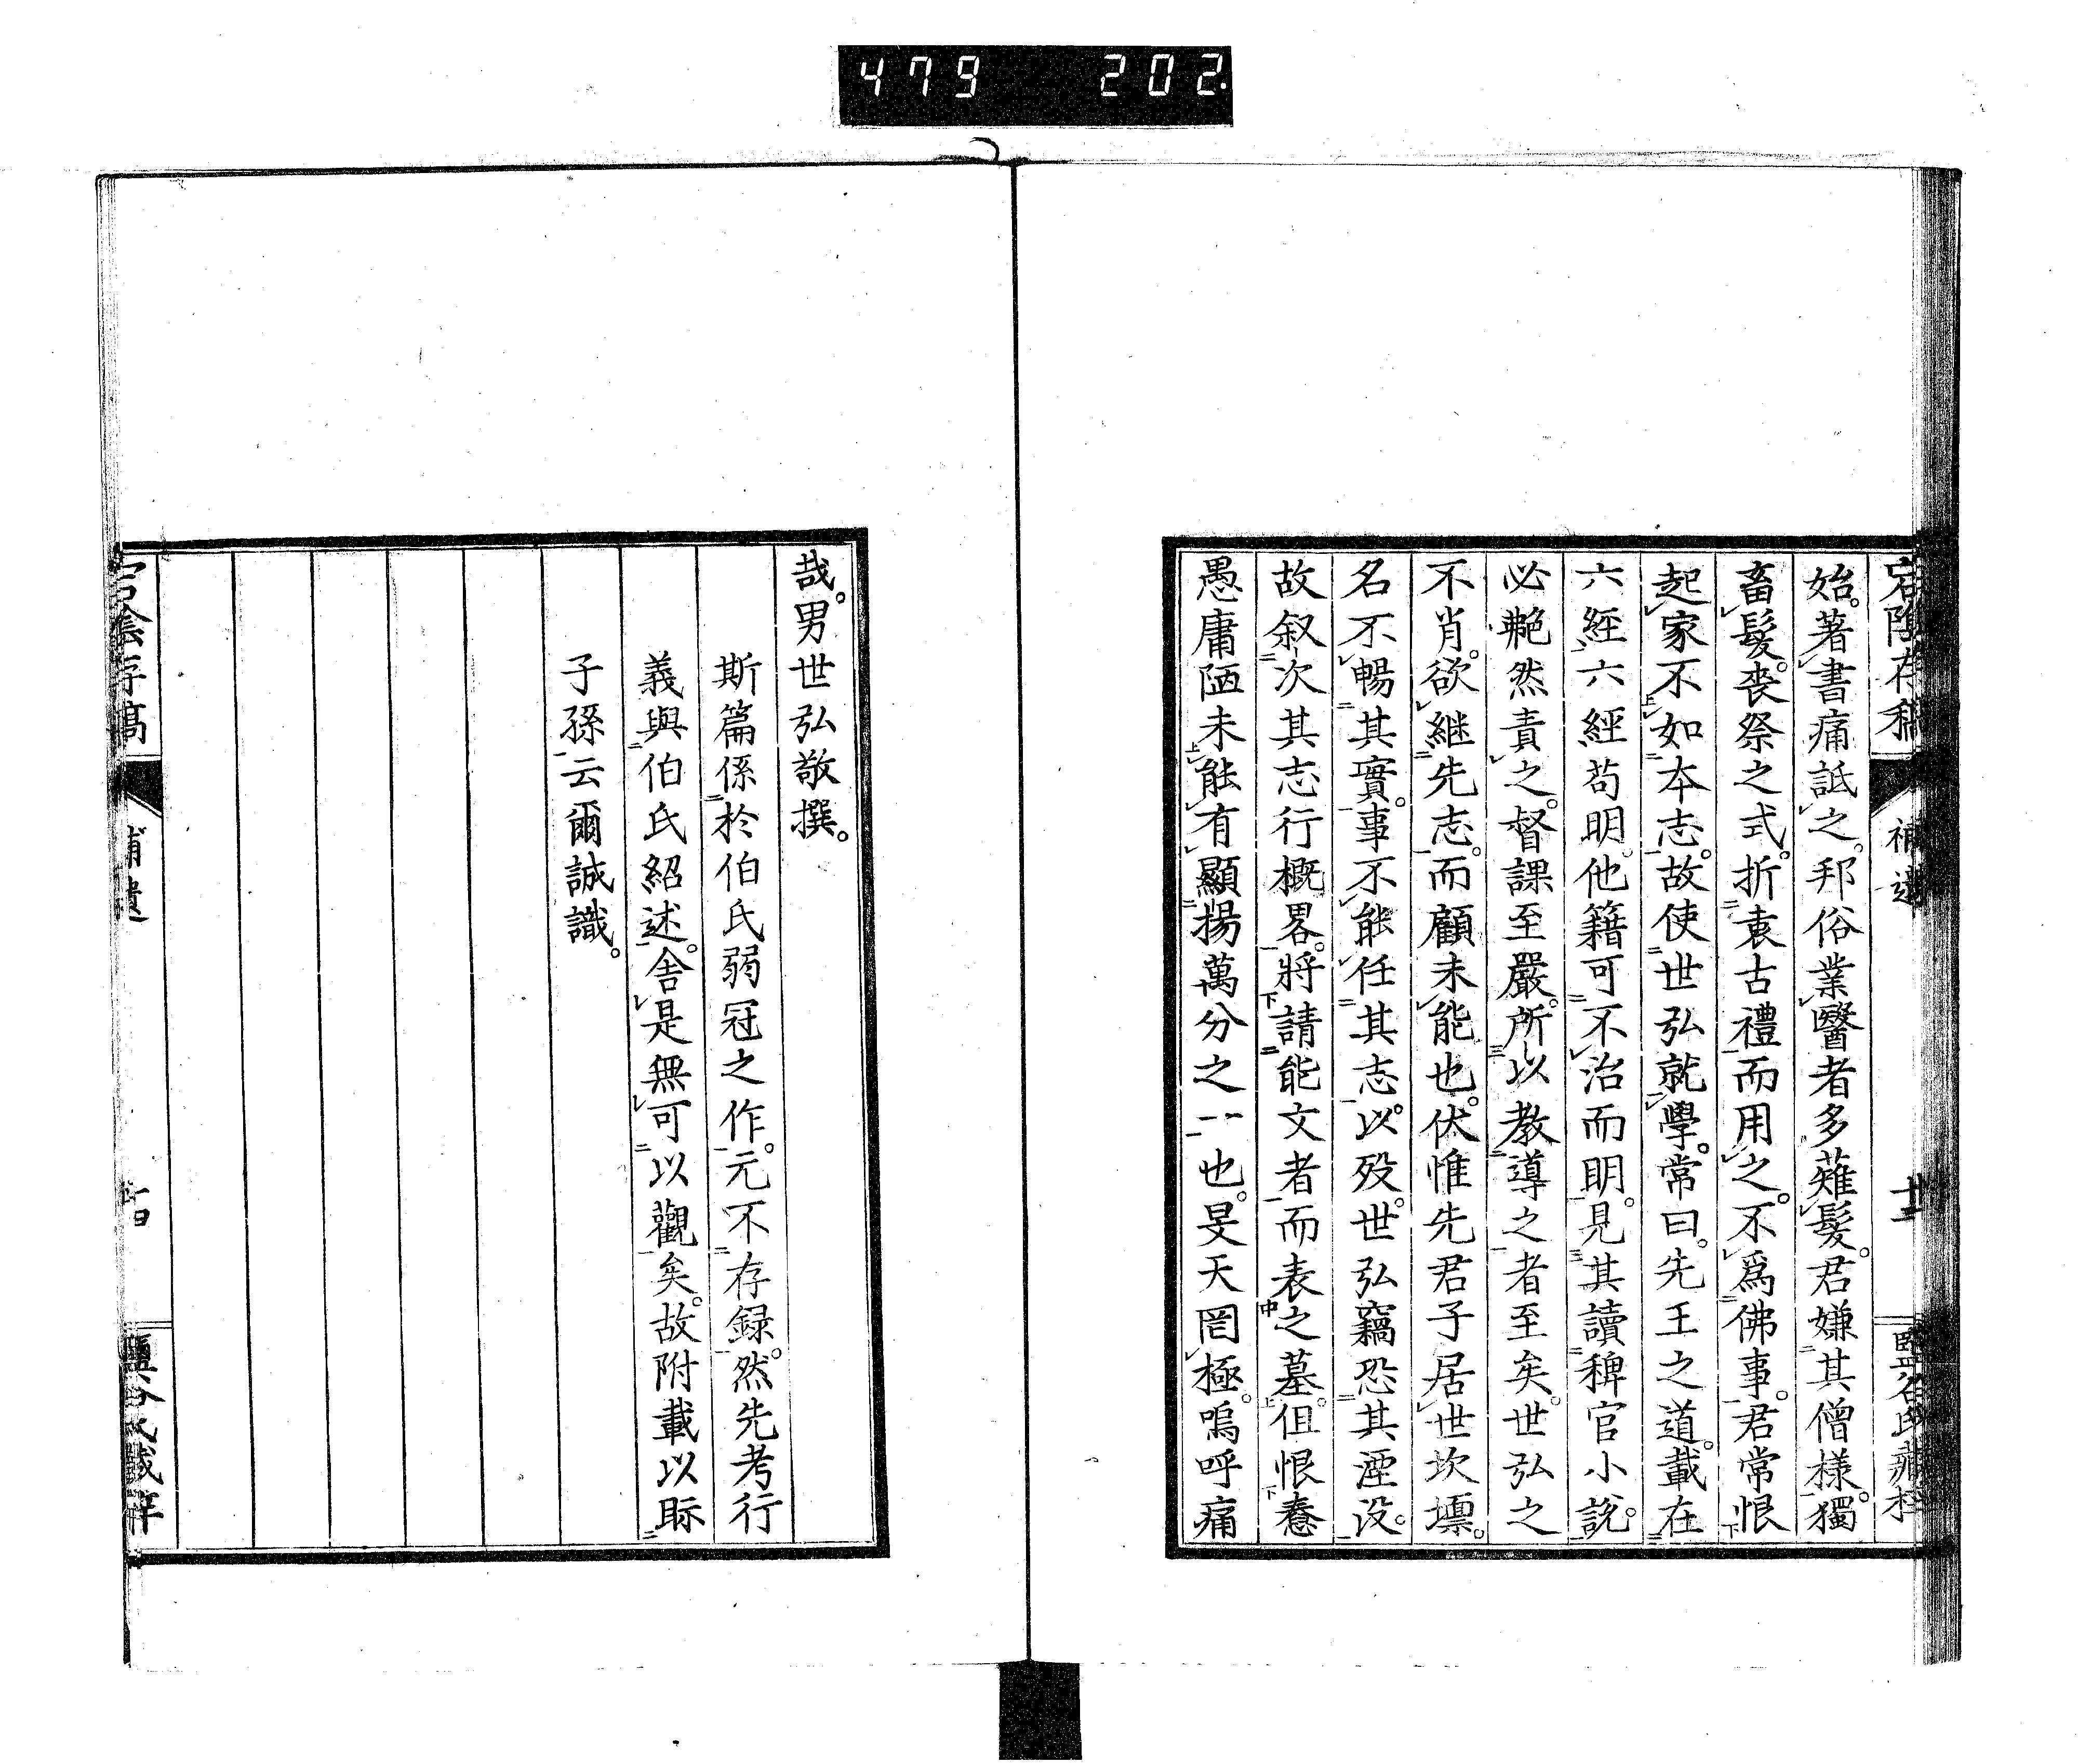 479 202.
宕陰存稿 補遺 鹽谷氏藏梓
始。著書痛詆之。邦俗業醫者多薙髮。君嫌其僧樣。獨
畜髮。喪祭之式。折衷古禮而用之。不爲佛事。君常恨
起家不如本志。故使世弘就學。常曰。先王之道。載在
六經。六經苟明。他籍可不治而明。見其讀稗官小說。
必艴然責之。督課至嚴。所以教導之者至矣。世弘之
不肖。欲継先志。而顧未能也。伏惟先君子居世坎壈。
名不暢其實。事不能任其志。以歿世。弘竊恐其湮没。
故叙次其志行概畧。將請能文者而表之墓。但恨惷
愚庸陋未能有顯揚萬分之一也。旻天罔極。嗚呼痛
哉。男世弘敬撰。
斯篇係於伯氏弱冠之作。元不存録。然先考行
義與伯氏紹述。舍是無可以觀矣。故附載以眎
子孫云爾誠識。
宕陰存稿 補遺 鹽谷氏藏梓